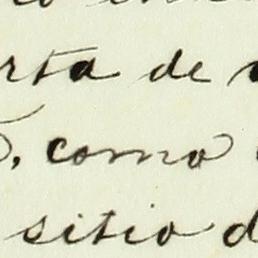 rta de
, como
sitio d